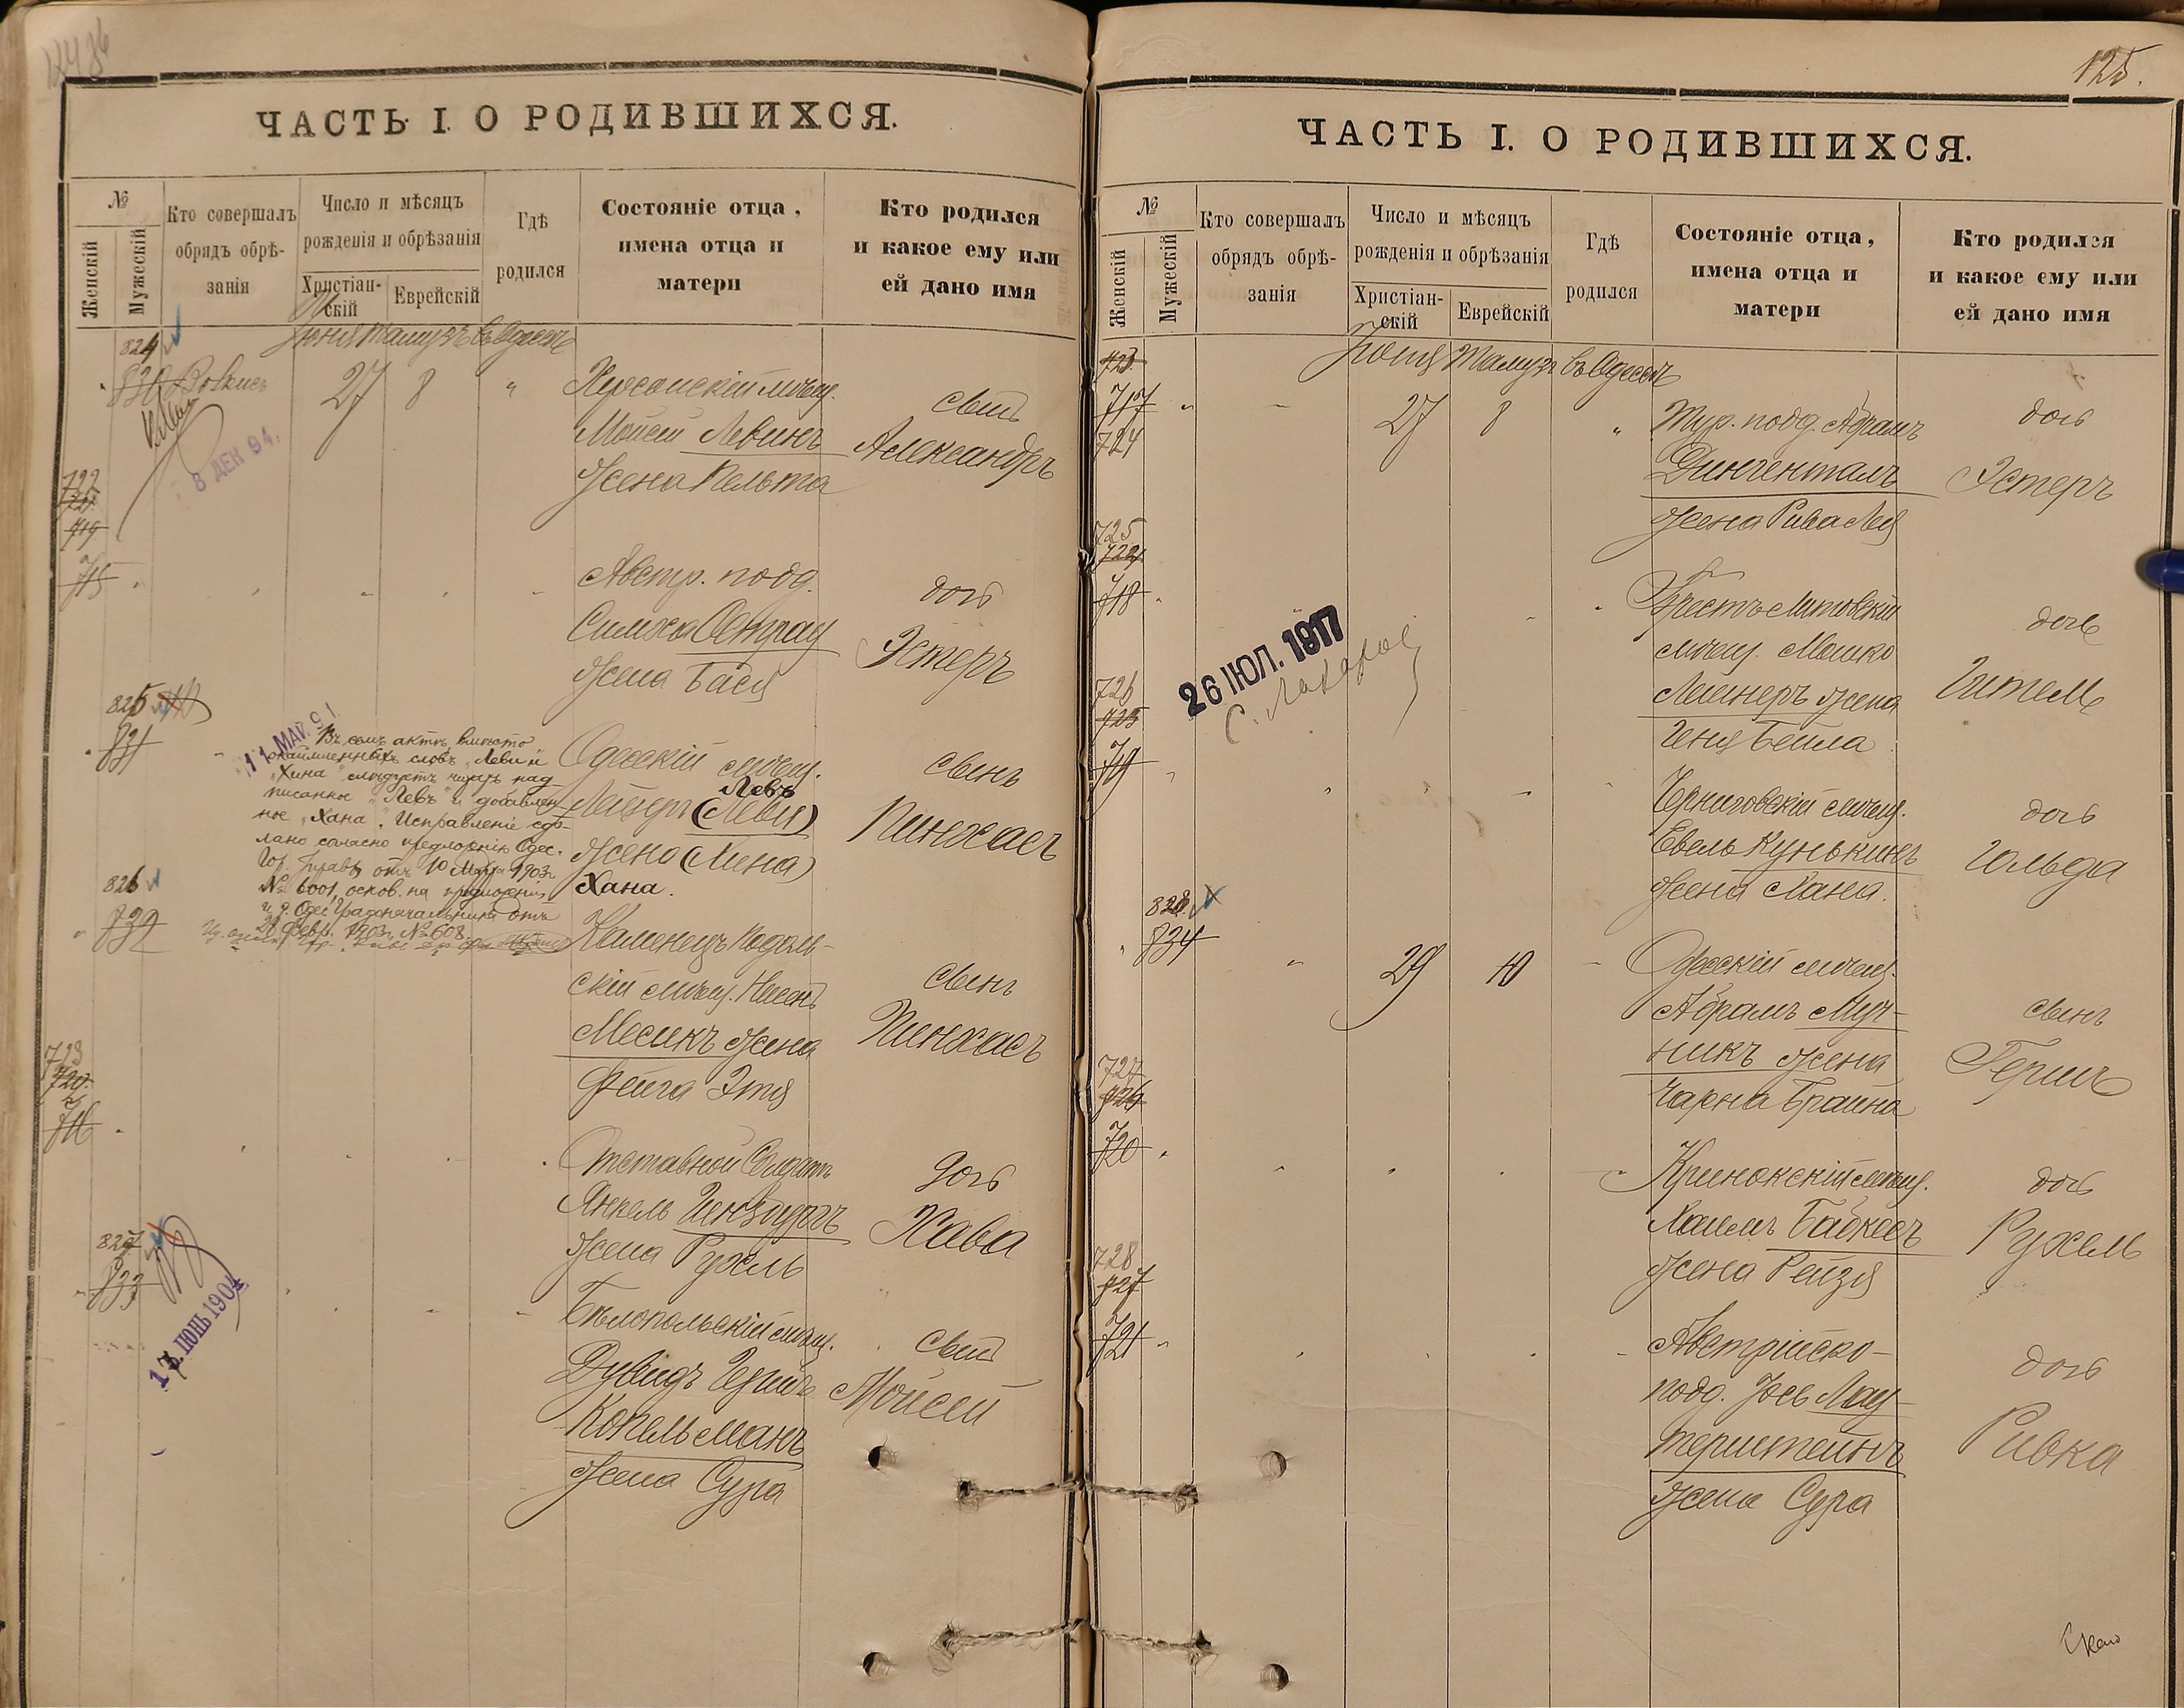 ЧАСТЬ I. О РОДИВШИХСЯ.
№
Женскій
Мужескій
Кто совершалъ
обрядъ обрѣ-
занія
Число и мѣсяцъ
рожденія и обрѣзанія
Христіан-
скій
Еврейскій
Гдѣ
родился
Состояніе отца,
имена отца и
матери
Кто родился
и какое ему или
ей дано имя
824
Іюня Тамузъ въ Одессѣ
830
27 8 "
Херсонскій мѣщ.
Мойсей Левинъ
жена Пельта
сынъ
Александръ
8 ДЕК 94.
722
721
719
715
Австр. подд.
Симха
жена Бася
дочь
Эстеръ
825
831
11 МАР. 9
Въ семъ актѣ вмѣсто
окаймленныхъ словъ „Леви и
„Хина" слѣдуетъ читать над
писанное „Левъ" и добавлен-
ное „Хана". Исправленіе сдѣ-
лано согласно предложенію Одес.
Гор. Управы отъ 10 Марта 1903 г.
№ 6001, основ. на предложеніи
и. д. Одес. Градоначальника отъ
21 Февр. 1903 г. № 608.
Одесскій мѣщ.
Левъ
Лейзеръ (Леви)
жена (Хина)
Хана.
сынъ
Пинхасъ
826
832
Каменецъ Подоль-
скій мѣщ. Нисенъ
Месикъ жена
Фейга Этя
сынъ
Пинхасъ
723
720
716
Отставной Солдатъ
Янкель Гинзбургъ
жена Рухль
дочь
Хава
827
833
1 ІЮНЬ 1904
Бѣлопольскій мѣщ.
Дувидъ Гершъ
Копельманъ
жена Сура
сынъ
Мойсей
125.
ЧАСТЬ I. О РОДИВШИХСЯ.
№
Женскій
Мужескій
Кто совершалъ
обрядъ обрѣ-
занія
Число и мѣсяцъ
рожденія и обрѣзанія
Христіан-
скій
Еврейскій
Гдѣ
родился
Состояніе отца,
имена отца и
матери
Кто родился
и какое ему или
ей дано имя
723
Іюня Тамузъ въ Одессѣ
717
724
27 8 "
Тур. подд. Абрамъ
Дингенталь
жена Рива Лея
дочь
Эстеръ
725
724
718
Брестъ Литовскій
мѣщ. Мошко
Лейнеръ жена
Геня Бейла
дочь
Гитель
26 ІЮЛ. 1917
726
725
719
Черниговскій мѣщ.
Евель Кунькинъ
жена Хана.
дочь
Гольда
828
834
29 10
Одесскій мѣщ.
Абрамъ Муч-
никъ жена
Чарна Брайна
сынъ
Гершъ
727
726
720
Кринокскій мѣщ.
Хаимъ Бабкесъ
жена Рейзя
дочь
Рухель
728
727
721
Австрійско-
подд. Іось Лау-
терштейнъ
жена Сура
дочь
Ривка